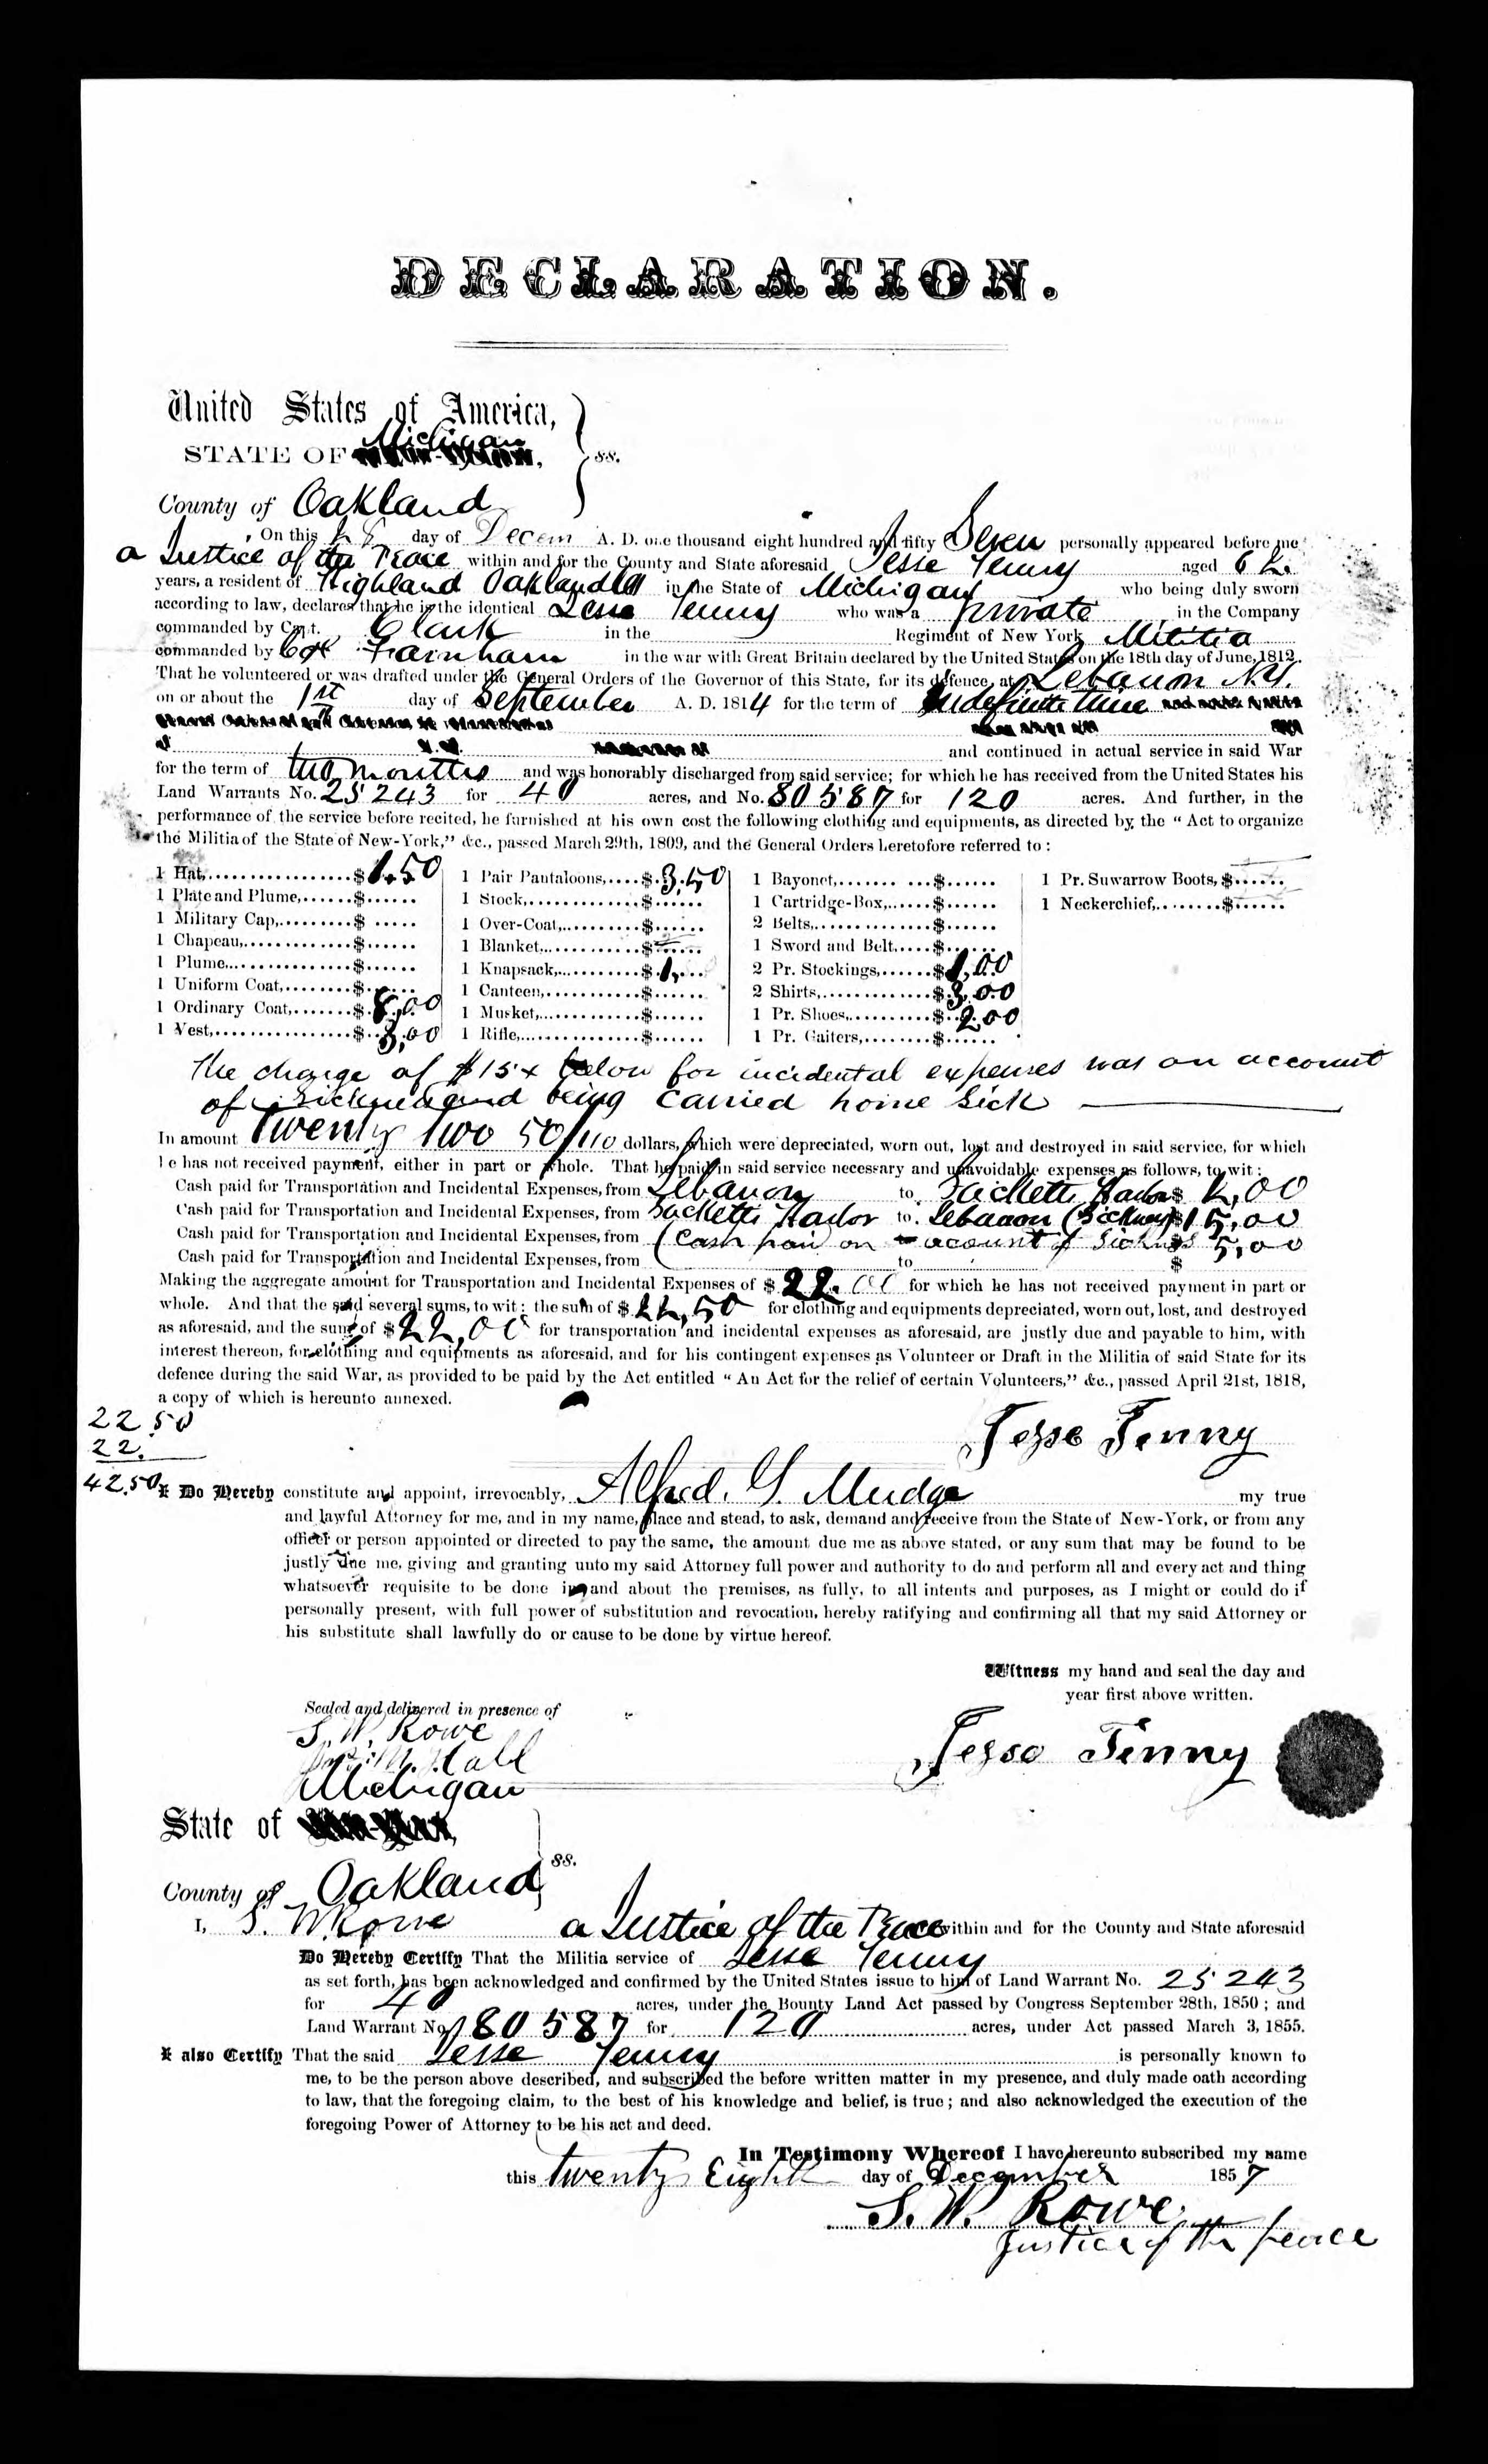 DECLARATION.
United States of America,
Michigan
STATE OF
ss.
County of Oakland
On this 28 day of Decem A. D. one thousand eight hundred and fifty Seven personally appeared before me
a Justice of the Peace within and for the County and State aforesaid Jesse Tenny aged 62
years, a resident of Highland Oakland Co in the State of Michigan who being duly sworn
according to law, declares that he is the identical Jesse Tenny who was a private in the Company
commanded by Capt. Clark in the Regiment of New York Militia
commanded by Col Farnham in the war with Great Britain declared by the United States on the 18th day of June, 1812.
That he volunteered or was drafted under the General Orders of the Governor of this State, for its defence, at Lebanon N.Y.
on or about the 1st day of September A. D. 1814 for the term of Indefinite time
and continued in actual service in said War
for the term of two months and was honorably discharged from said service; for which he has received from the United States his
Land Warrants No. 25243 for 40 acres, and No. 80587 for 120 acres. And further, in the
performance of the service before recited, he furnished at his own cost the following clothing and equipments, as directed by the "Act to organize
the Militia of the State of New-York," &c., passed March 29th, 1809, and the General Orders heretofore referred to:
1 Hat, $1.50
1 Plate and Plume, $
1 Military Cap, $
1 Chapeau, $
1 Plume $
1 Uniform Coat, $
1 Ordinary Coat, $8,00
1 Vest, $3,00
1 Pair Pantaloons, $3,50
1 Stock, $
1 Over-Coat, $
1 Blanket $
1 Knapsack, $1,
1 Canteen, $
1 Musket, $
1 Rifle, $
1 Bayonet, $
1 Cartridge-Box, $
2 Belts, $
1 Sword and Belt $
2 Pr. Stockings, $1,00
2 Shirts, $3,00
1 Pr. Shoes, $2,00
1 Pr. Gaiters, $
1 Pr. Suwarrow Boots, $
1 Neckerchief, $
The charge of $15 below for incidental expenses was on account
of Sickness and being carried home Sick
In amount Twenty Two 50/100 dollars, which were depreciated, worn out, lost and destroyed in said service, for which
he has not received payment, either in part or whole. That he paid in said service necessary and unavoidable expenses as follows, to wit:
Cash paid for Transportation and Incidental Expenses, from Lebanon to Sacketts Harbor $ 2,00
Cash paid for Transportation and Incidental Expenses, from Sacketts Harbor to Lebanon (Sickness) $15,00
Cash paid for Transportation and Incidental Expenses, from (Cash paid on account of Sickness $ 5,00
Cash paid for Transportation and Incidental Expenses, from to $
Making the aggregate amount for Transportation and Incidental Expenses of $ 22.00 for which he has not received payment in part or
whole. And that the said several sums, to wit: the sum of $ 22,50 for clothing and equipments depreciated, worn out, lost, and destroyed
as aforesaid, and the sum of $ 22,00 for transportation and incidental expenses as aforesaid, are justly due and payable to him, with
interest thereon, for clothing and equipments as aforesaid, and for his contingent expenses as Volunteer or Draft in the Militia of said State for its
defence during the said War, as provided to be paid by the Act entitled "An Act for the relief of certain Volunteers," &c., passed April 21st, 1818,
a copy of which is hereunto annexed.
22.50
22.
42.50
Jesse Tenny
I Do Hereby constitute and appoint, irrevocably, Alfred. G. Mudge my true
and lawful Attorney for me, and in my name, place and stead, to ask, demand and receive from the State of New-York, or from any
officer or person appointed or directed to pay the same, the amount due me as above stated, or any sum that may be found to be
justly due me, giving and granting unto my said Attorney full power and authority to do and perform all and every act and thing
whatsoever requisite to be done in and about the premises, as fully, to all intents and purposes, as I might or could do if
personally present, with full power of substitution and revocation, hereby ratifying and confirming all that my said Attorney or
his substitute shall lawfully do or cause to be done by virtue hereof.
Witness my hand and seal the day and
year first above written.
Sealed and delivered in presence of
S. W. Rowe
Hall
Jesse Tenny
Michigan
State of
ss.
County of Oakland
I, S. W Rowe a Justice of the Peace within and for the County and State aforesaid
Do Hereby Certify That the Militia service of Jesse Tenny
as set forth, has been acknowledged and confirmed by the United States issue to him of Land Warrant No. 25243
for 40 acres, under the Bounty Land Act passed by Congress September 28th, 1850; and
Land Warrant No 80587 for 120 acres, under Act passed March 3, 1855.
I also Certify That the said Jesse Tenny is personally known to
me, to be the person above described, and subscribed the before written matter in my presence, and duly made oath according
to law, that the foregoing claim, to the best of his knowledge and belief, is true; and also acknowledged the execution of the
foregoing Power of Attorney to be his act and deed.
In Testimony Whereof I have hereunto subscribed my name
this twenty Eighth day of December 1857
S. W. Rowe
Justice of the peace